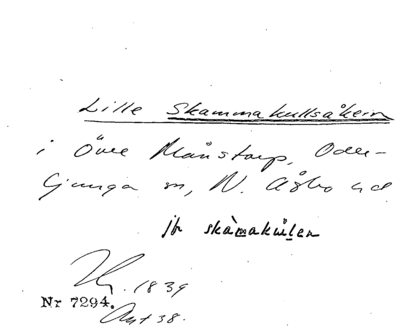 Lille Skammakullsåkern
i Övre Månstorp, Oder-
ljunga sn, N. Åsbo hd
jfr skàmakùlen
1839
Nr 7294.
Avt 38.